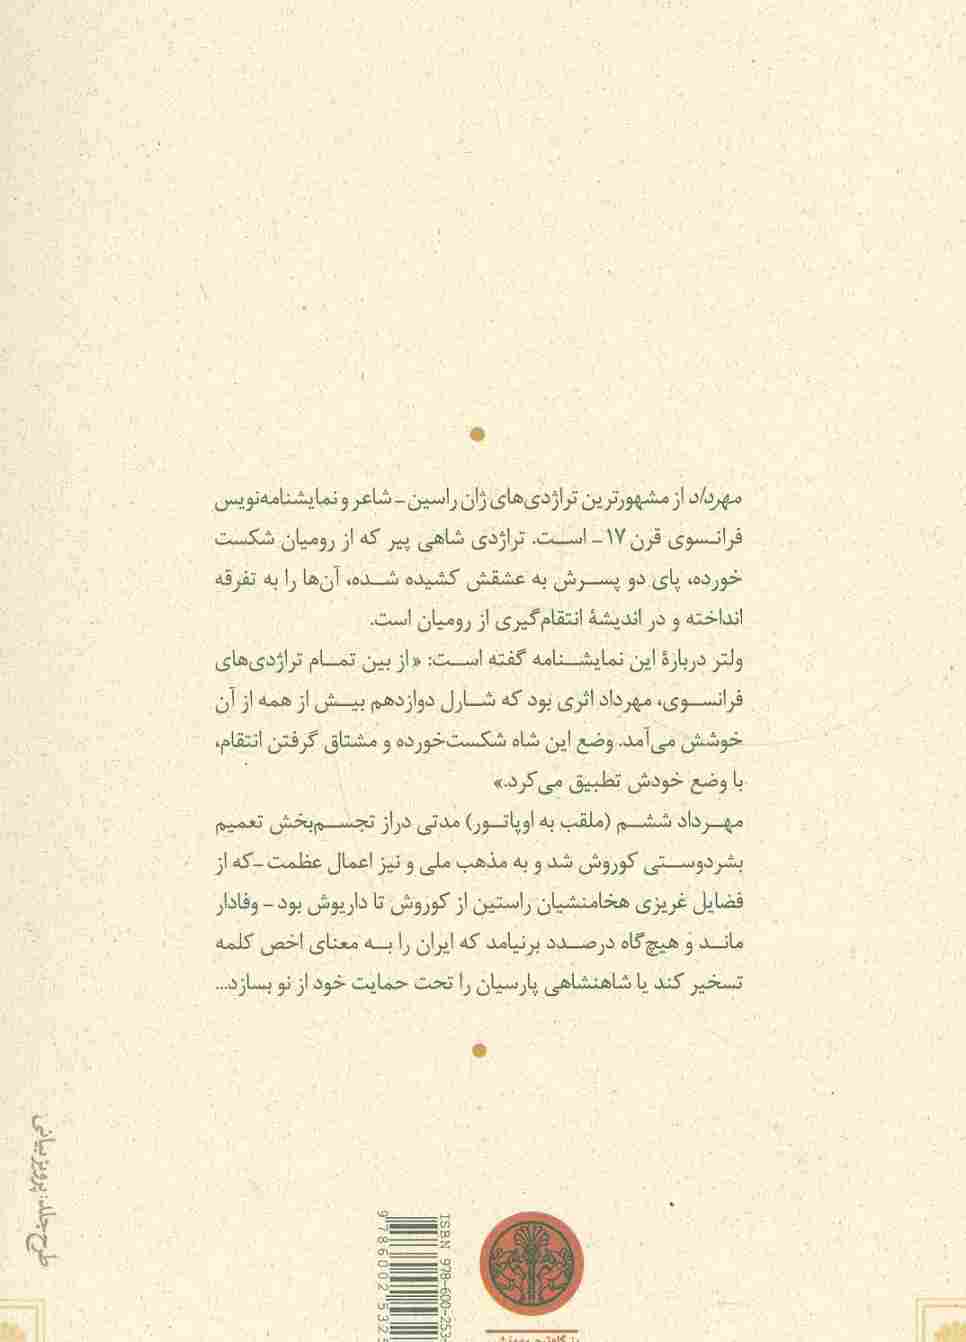 مهرداد از مشهورترین تراژدی‌های ژان راسین - شاعر و نمایشنامه‌نویس
فرانسوی قرن ۱۷ - است. تراژدی شاهی پیر که از رومیان شکست
خورده، پای دو پسرش به عشقش کشیده شده، آن‌ها را به تفرقه
انداخته و در اندیشهٔ انتقام‌گیری از رومیان است.
ولتر دربارهٔ این نمایشنامه گفته است: «از بین تمام تراژدی‌های
فرانسوی، مهرداد اثری بود که شارل دوازدهم بیش از همه از آن
خوشش می‌آمد. وضع این شاه شکست‌خورده و مشتاق گرفتن انتقام،
با وضع خودش تطبیق می‌کرد.»
مهرداد ششم (ملقب به اوپاتور) مدتی دراز تجسم‌بخش تعمیم
بشردوستی کوروش شد و به مذهب ملی و نیز اعمال عظمت -که از
فضایل غریزی هخامنشیان راستین از کوروش تا داریوش بود - وفادار
ماند و هیچ‌گاه درصدد برنیامد که ایران را به معنای اخص کلمه
تسخیر کند یا شاهنشاهی پارسیان را تحت حمایت خود از نو بسازد...
طرح جلد: پرویز بیانی
ISBN 978-600-253-
9 786002 532